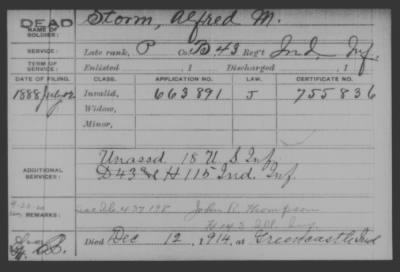 DEAD
NAME OF SOLDIER: Storm, Alfred M.
SERVICE: Late rank, P Co. D, 43 Reg't Ind. Inf.
TERM OF SERVICE: Enlisted , 1 Discharged , 1
DATE OF FILING. CLASS. APPLICATION NO. LAW. CERTIFICATE NO.
1888 July 02 Invalid, 663891 J 755836
Widow,
Minor,
ADDITIONAL SERVICES: Unassd 18 U.S. Inf.
D 43 & H 115 Ind. Inf.
REMARKS: John R. Thompson
H 143 Ill. Inf.
Died Dec 12, 1914, at Greencastle Ind